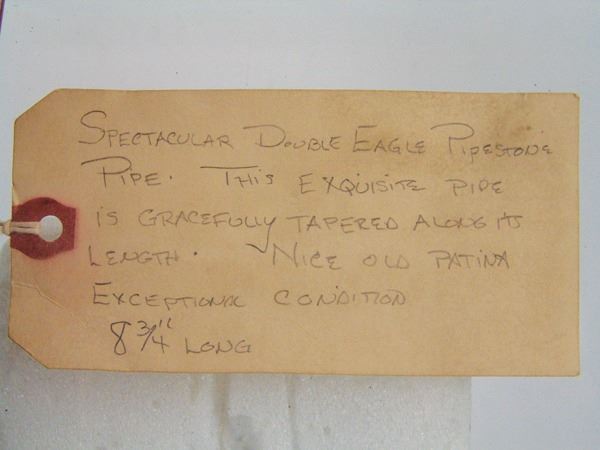 Spectacular Double Eagle Pipestone
Pipe. This exquisite pipe
is gracefully tapered along its
length. Nice old patina
Exceptional condition
8 3/4" long